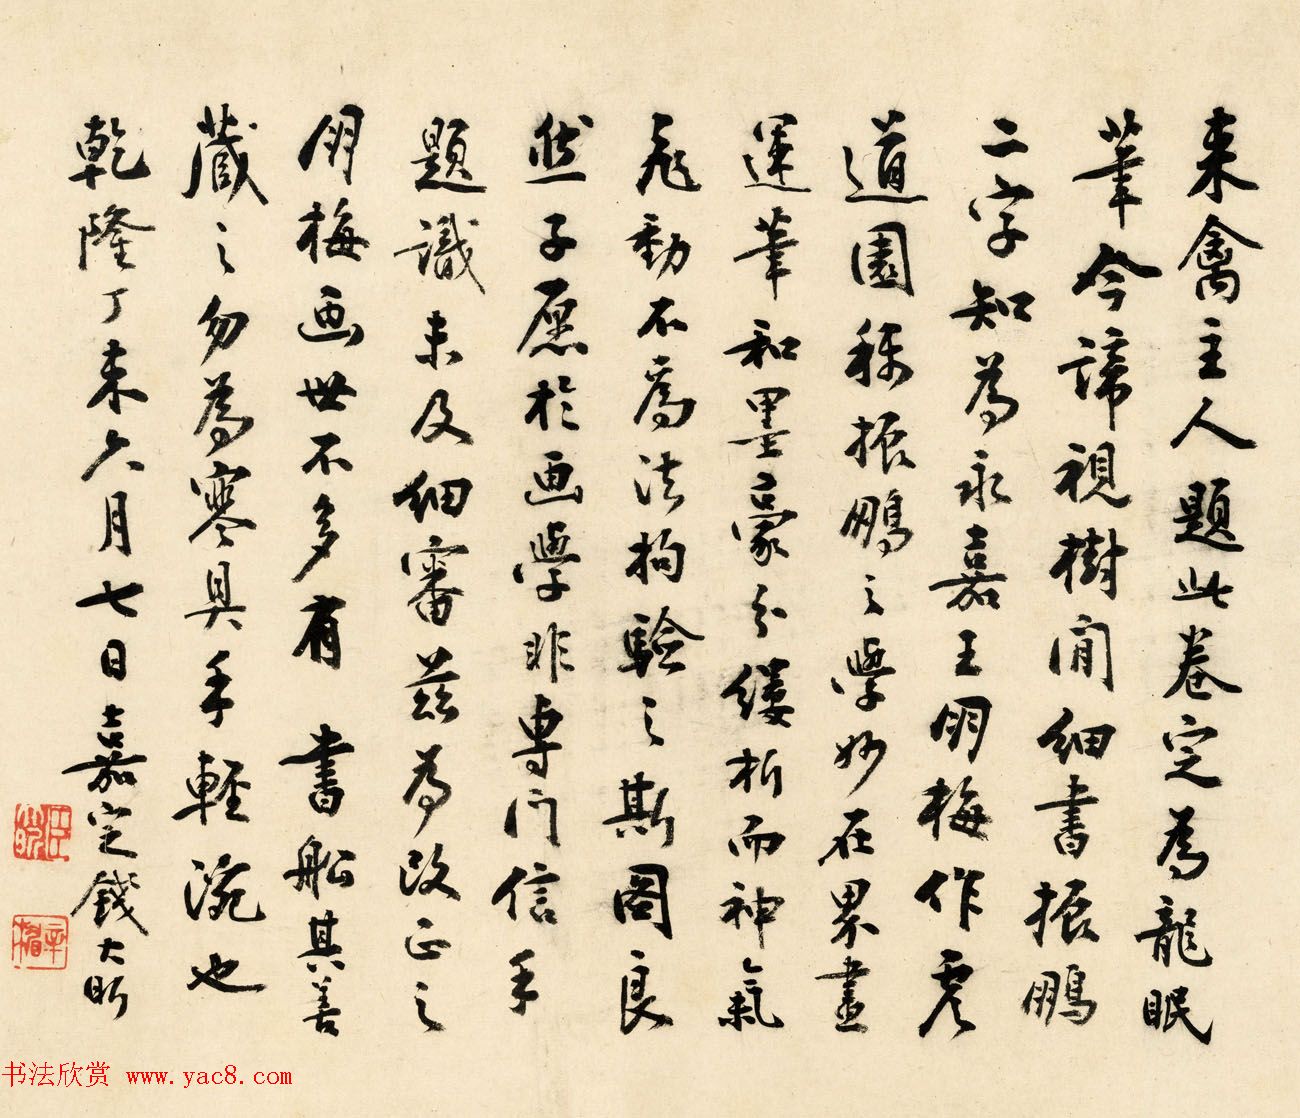 来禽主人題此卷定為龍眠
筆今諦視樹間細書振鵬
二字知為永嘉王朋梅作虞
道園稱振鵬之學妙在界畫
運筆和墨豪分縷析而神氣
飛動不為法拘驗之斯圖良
然子愿於画學非專門信手
題識未及細審茲為改正之
朋梅画世不多有 書船其善
藏之勿為寒具手輕涴也
乾隆丁未六月七日嘉定錢大昕
辛楣
书法欣赏 www.yac8.com